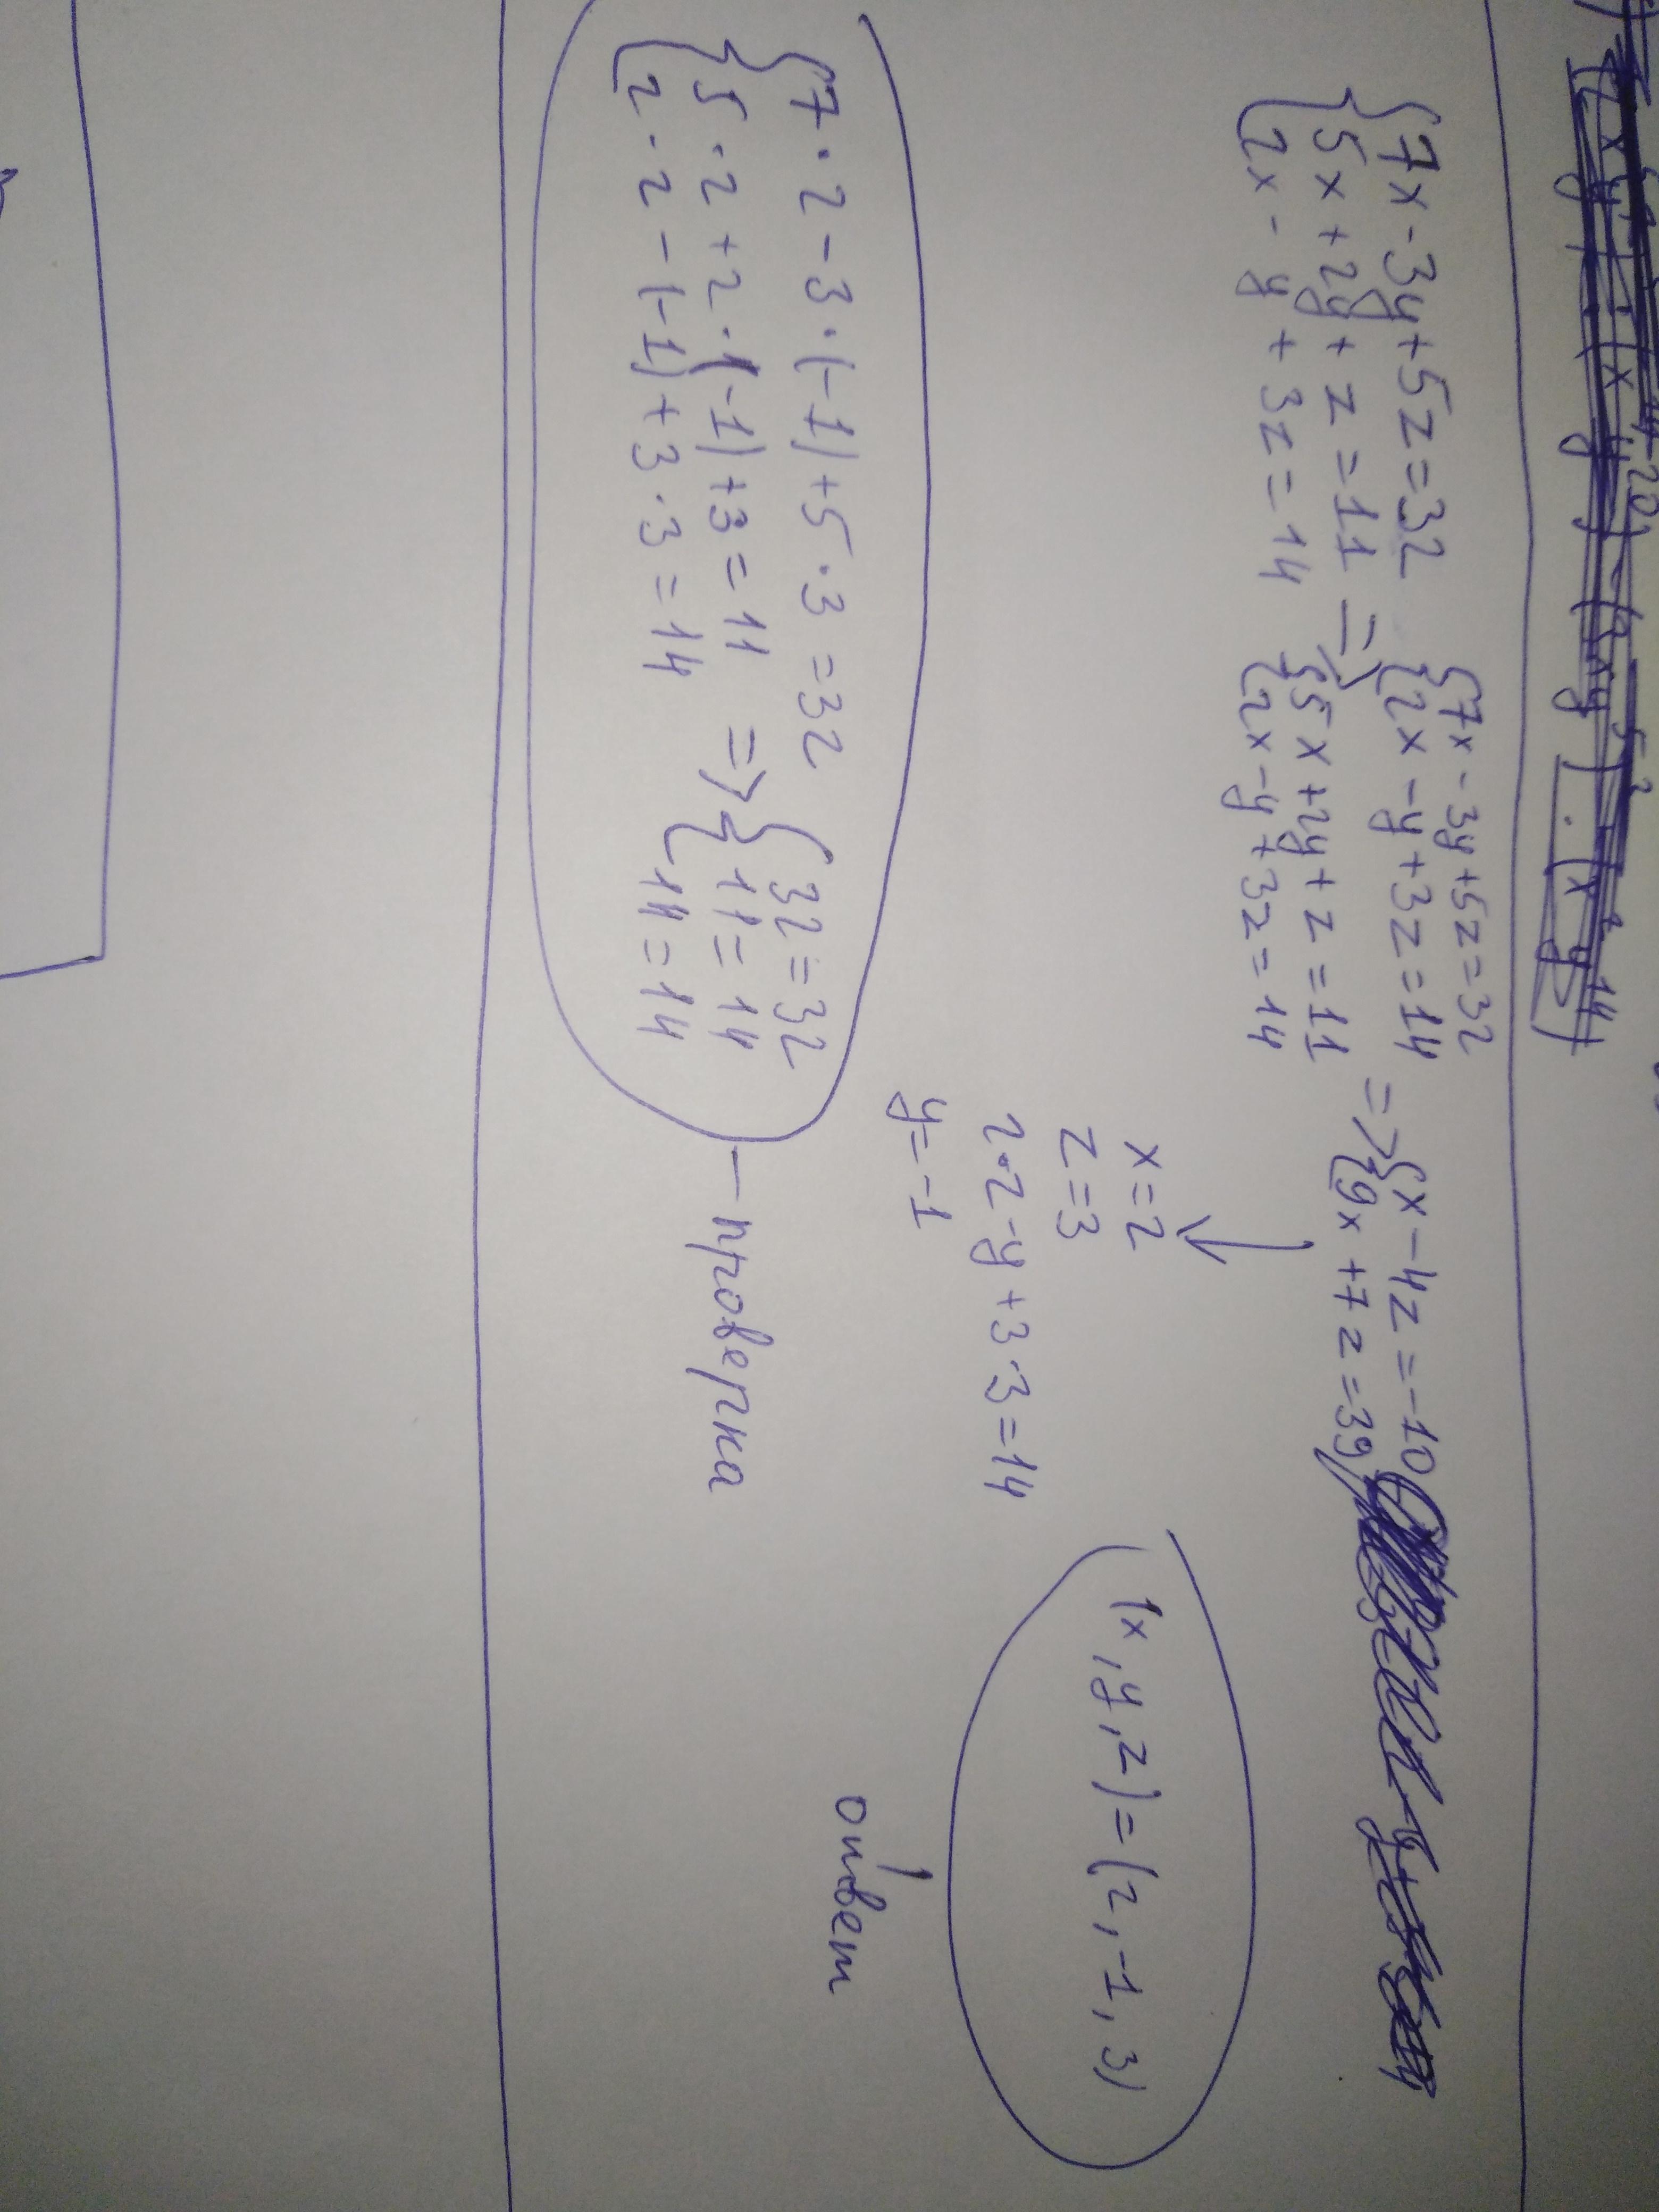 {7x-3y+5z=32
{5x+2y+z=11
{2x-y+3z=14
=>
{7x-3y+5z=32
{2x-y+3z=14
{5x+2y+z=11
{2x-y+3z=14
=>
{x-4z=-10
{9x+7z=39
x=2
z=3
2·2-y+3·3=14
y=-1
(x,y,z)=(2,-1,3)
ответ
{7·2-3·(-1)+5·3=32
{5·2+2·(-1)+3=11
{2·2-(-1)+3·3=14
=>
{32=32
{11=14
{14=14
- проверка